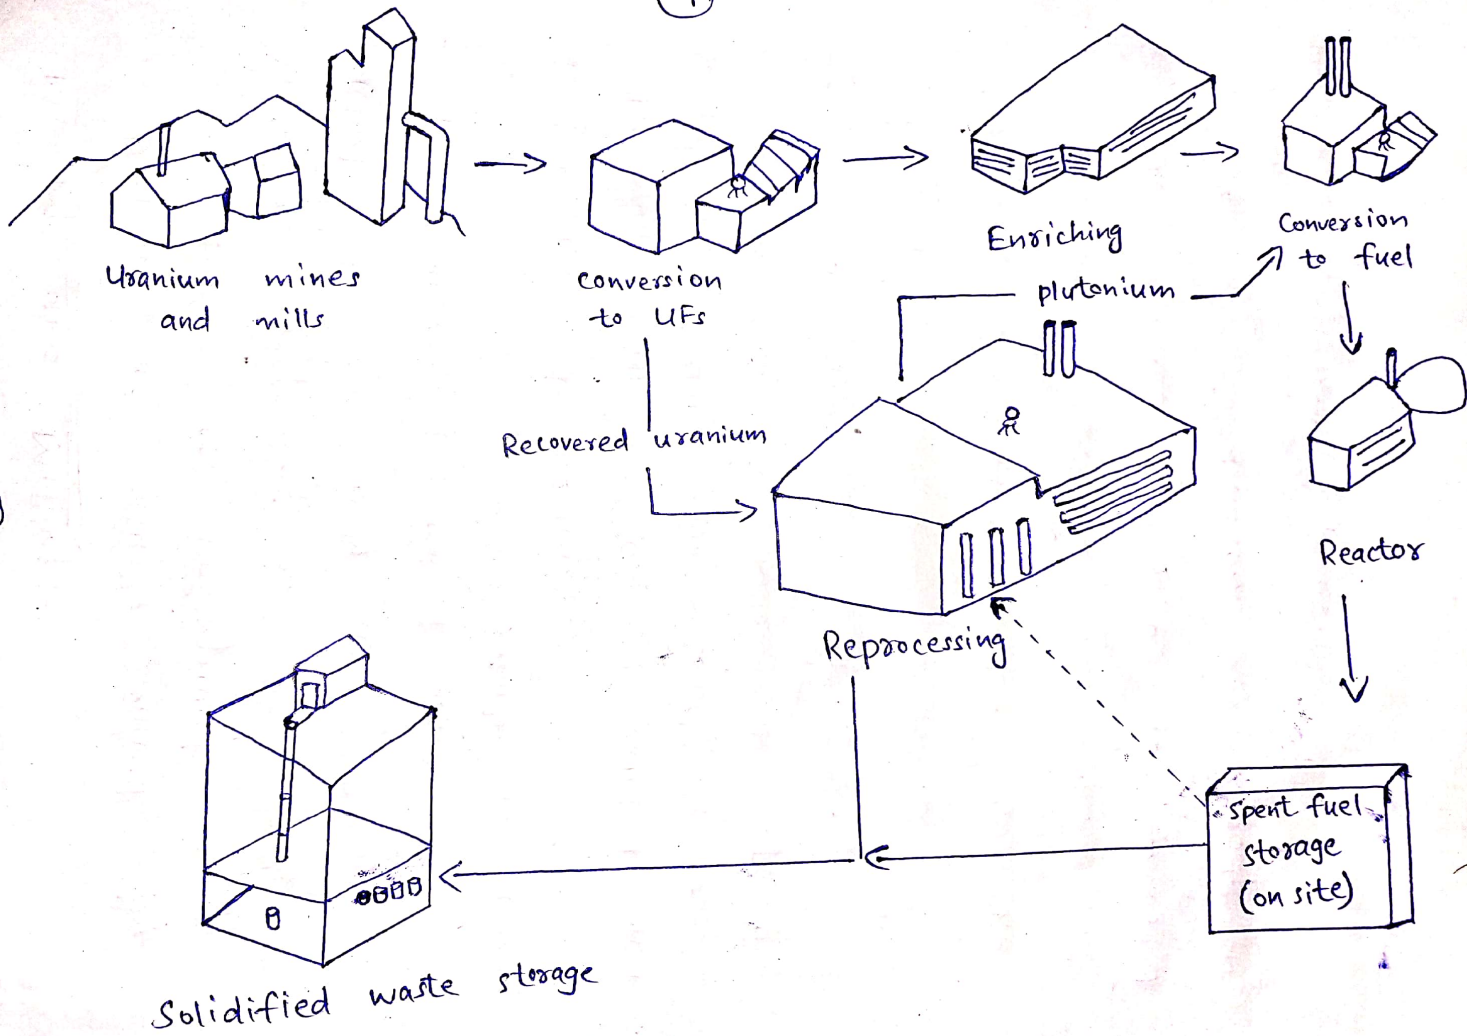 Uranium mines
and mills
conversion
to UFs
Enriching
Conversion
to fuel
plutonium
Recovered uranium
Reactor
Reprocessing
spent fuel
storage
(on site)
Solidified waste storage